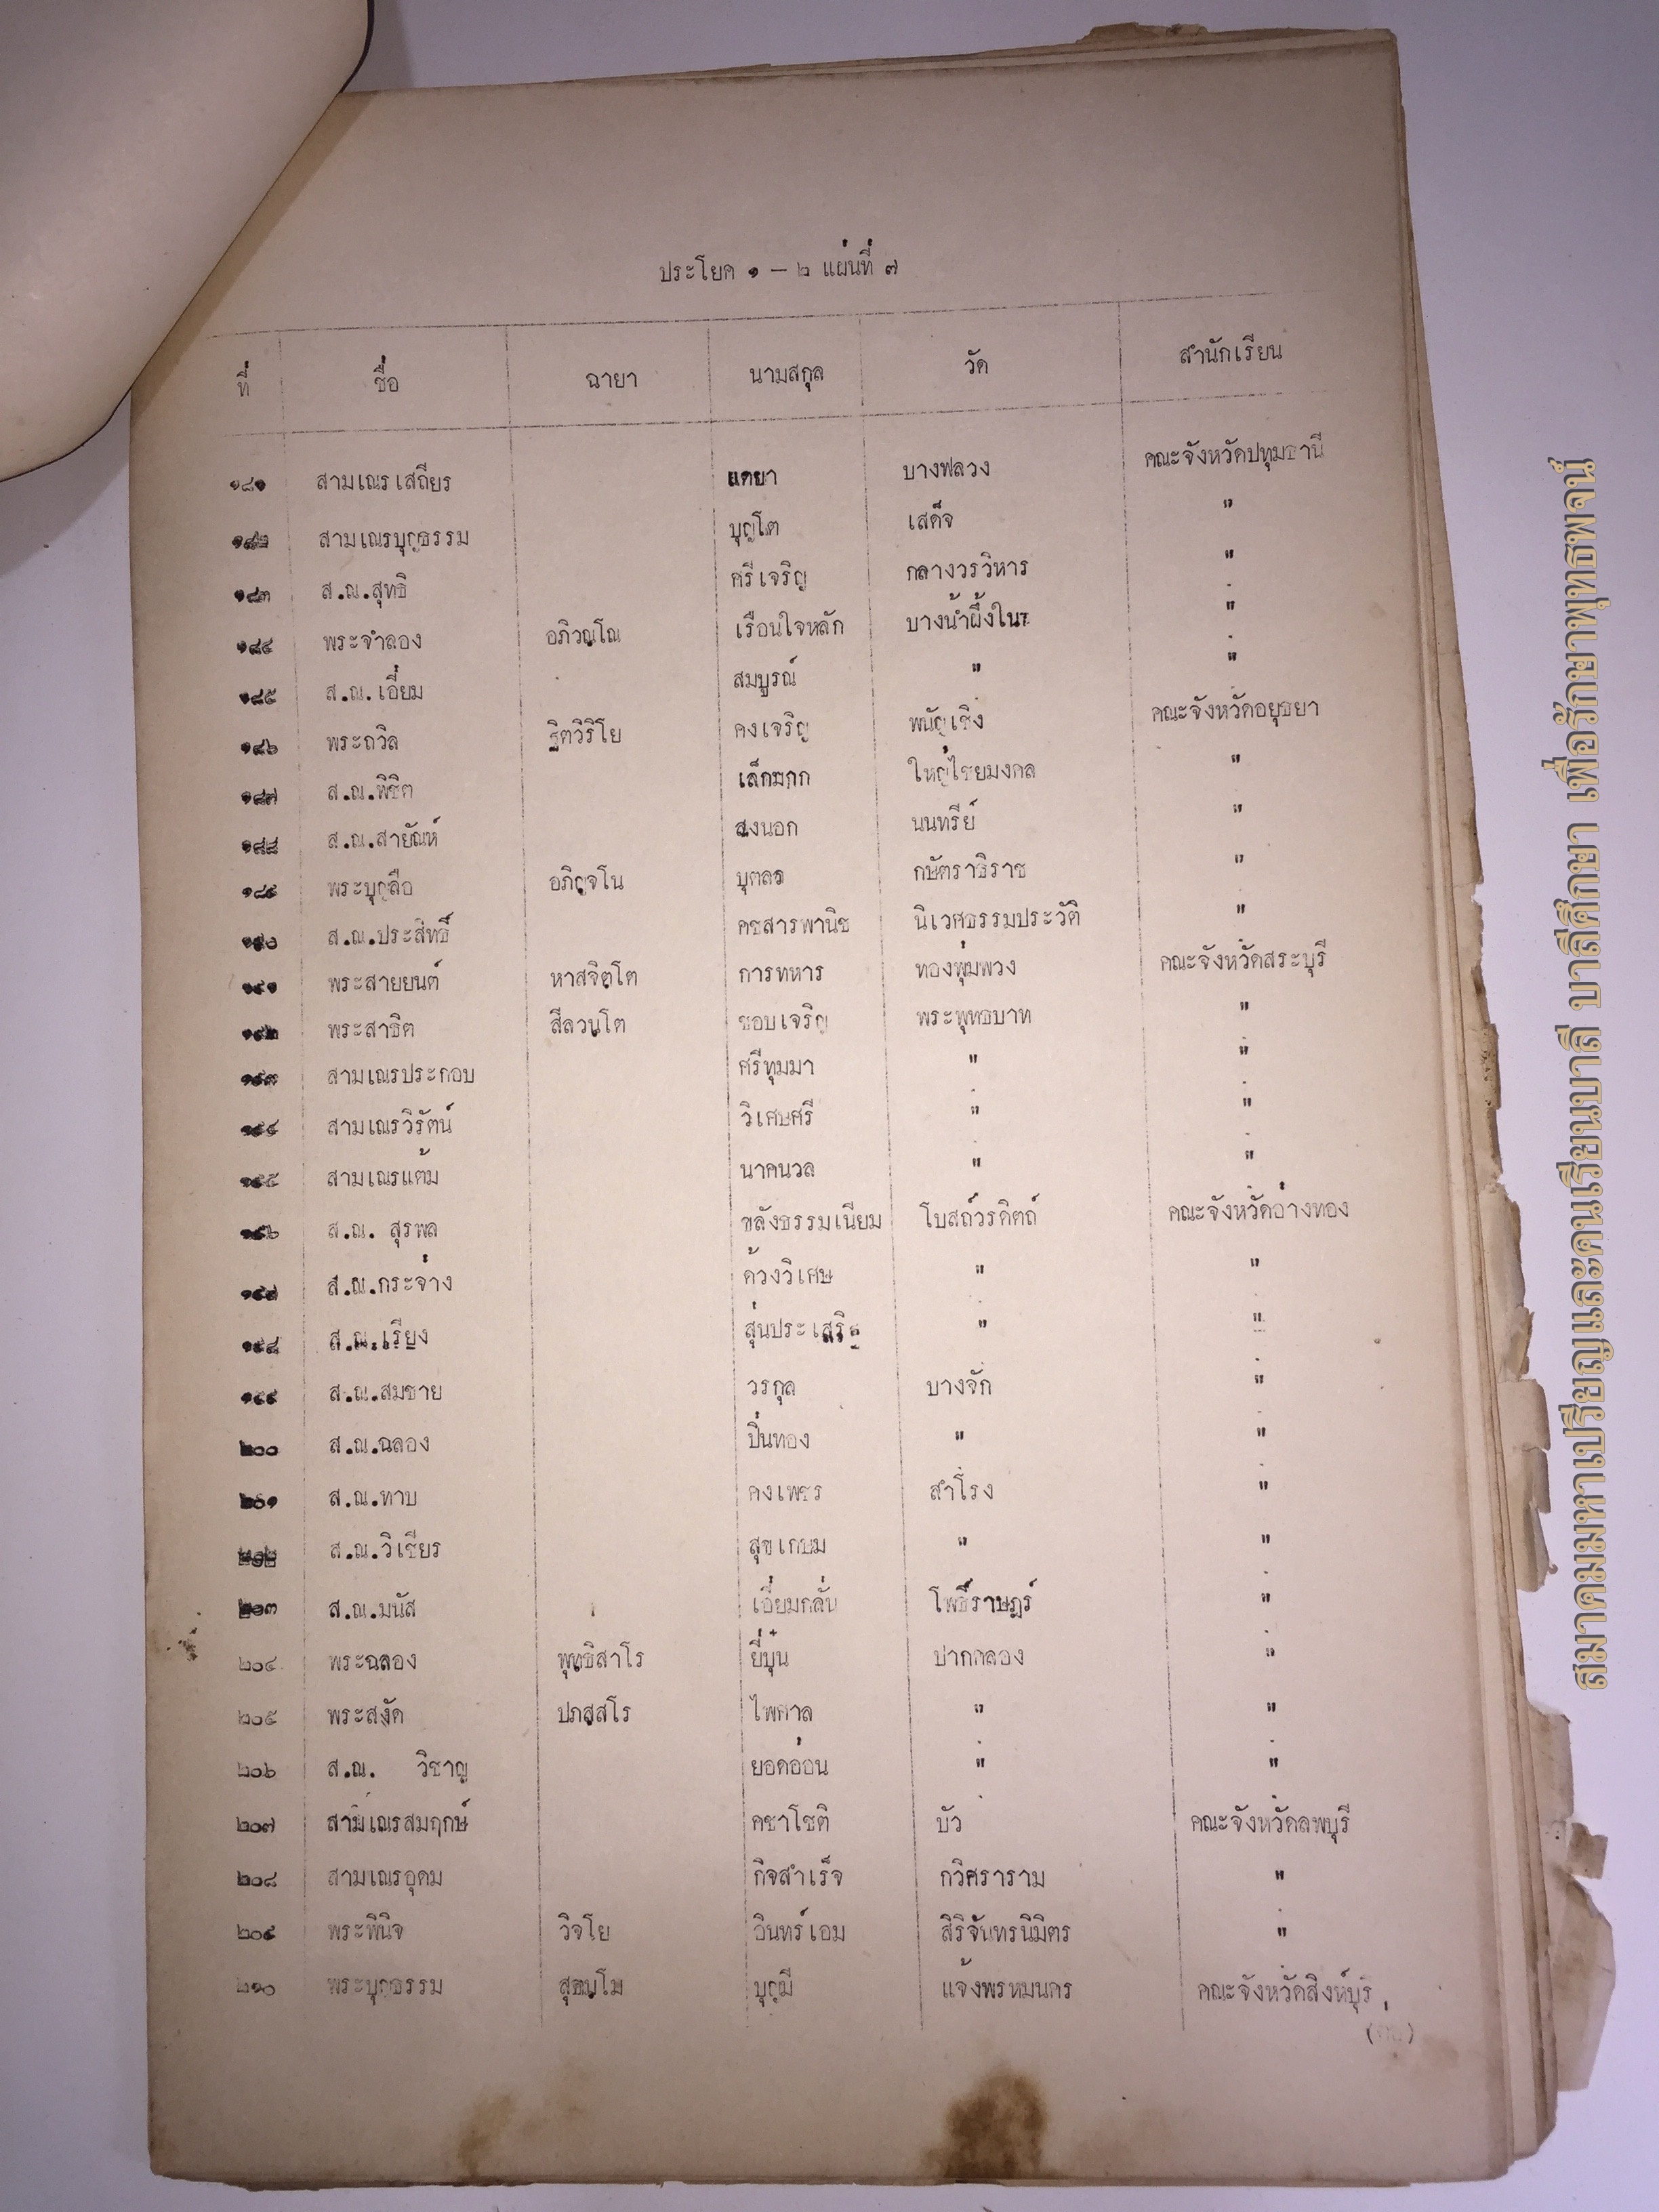 ประโยค ๑ – ๒ แผ่นที่ ๗
ที่ ชื่อ ฉายา นามสกุล วัด สำนักเรียน
๑๘๑ สามเณรเสถียร แตยา บางฟลวง คณะจังหวัดปทุมธานี
๑๘๒ สามเณรบุญธรรม บุญโต เสด็จ "
๑๘๓ ส.ณ.สุทธิ ศรีเจริญ กลางวรวิหาร "
๑๘๔ พระจำลอง อภิวณฺโณ เรือนใจหลัก บางน้ำผึ้งใน "
๑๘๕ ส.ณ.เอี่ยม สมบูรณ์ " "
๑๘๖ พระถวิล ฐิตวิริโย คงเจริญ พนัญเชิง คณะจังหวัดอยุธยา
๑๘๗ ส.ณ.พิชิต เล็กมาก ใหญ่ไชยมงคล "
๑๘๘ ส.ณ.สายัณห์ สงนอก นนทรีย์ "
๑๘๙ พระบุญลือ อภิญฺจโน บุตลอ กษัตราธิราช "
๑๙๐ ส.ณ.ประสิทธิ์ คชสารพานิช นิเวศธรรมประวัติ "
๑๙๑ พระสายยนต์ หาสจิตฺโต การทหาร ทองพุ่มพวง คณะจังหวัดสระบุรี
๑๙๒ พระสาธิต สีลวนฺโต ชอบเจริญ พระพุทธบาท "
๑๙๓ สามเณรประกอบ ศรีทุมมา " "
๑๙๔ สามเณรวิรัตน์ วิเศษศรี " "
๑๙๕ สามเณรแต้ม นาคนวล " "
๑๙๖ ส.ณ. สุรพล ขลังธรรมเนียม โบสถ์วรดิตถ์ คณะจังหวัดอ่างทอง
๑๙๗ ส.ณ.กระจ่าง ด้วงวิเศษ " "
๑๙๘ ส.ณ.เรียง สุ่นประเสริฐ " "
๑๙๙ ส.ณ.สมชาย วรกุล บางจัก "
๒๐๐ ส.ณ.ฉลอง ปิ่นทอง " "
๒๐๑ ส.ณ.ทาบ คงเพชร สำโรง "
๒๐๒ ส.ณ.วิเชียร สุขเกษม " "
๒๐๓ ส.ณ.มนัส เอี่ยมกลั่น โพธิ์ราษฎร์ "
๒๐๔ พระฉลอง พุทฺธิสาโร ยี่บุ๋น ปากคลอง "
๒๐๕ พระสงัด ปภสฺสโร ไพศาล " "
๒๐๖ ส.ณ. วิชาญ ยอดอ่อน " "
๒๐๗ สามเณรสมฤกษ์ คชาโชติ บัว คณะจังหวัดลพบุรี
๒๐๘ สามเณรอุดม กิจสำเร็จ กวิศราราม "
๒๐๙ พระพินิจ วิจโย อินทร์เอม สิริจันทรนิมิตร "
๒๑๐ พระบุญธรรม บุญมี แจ้งพรหมนคร คณะจังหวัดสิงห์บุรี
สมาคมมหาเปรียญและคนเรียนบาลี บาลีศึกษา เพื่อรักษาพุทธพจน์